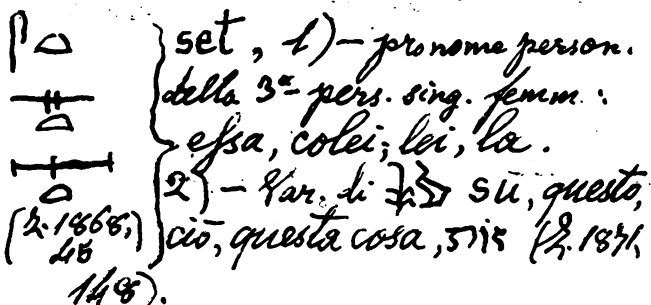 set, 1) – pronome person.
della 3ª pers. sing. femm.:
essa, colei; lei, la.
2) – Var. di sū, questo,
(Z. 1868, ciō, questa cosa, (Z. 1871,
45
148).